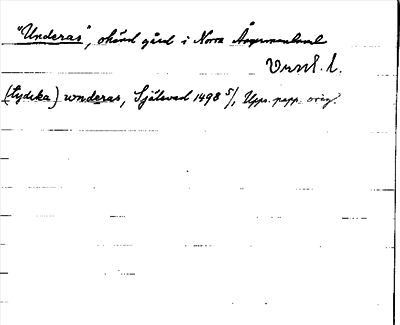 "Underas", okänd gård i Norra Ångermanland
(lydeka) wnderas, Själevad 1498 5/1, Upps. papp. orig.